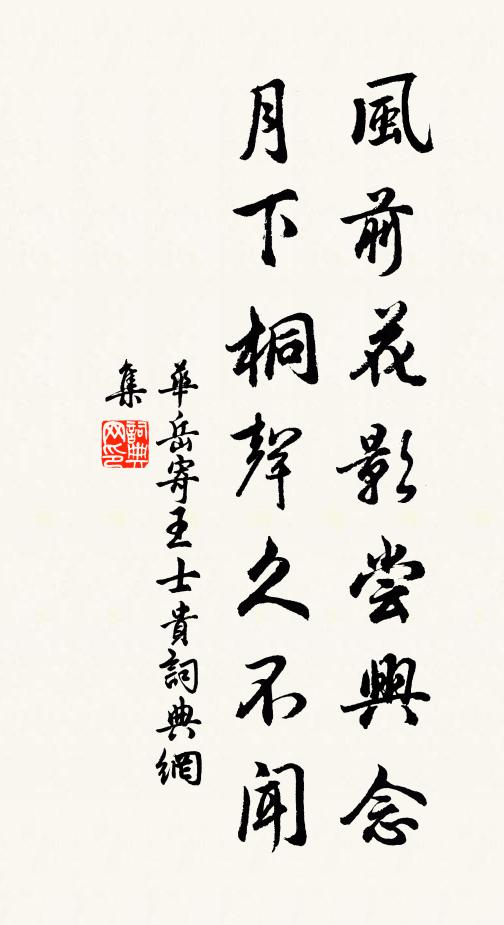 風前花影尝興念
月下桐聲久不闻
華岳寄王士貴詞典網
集
詞典网印